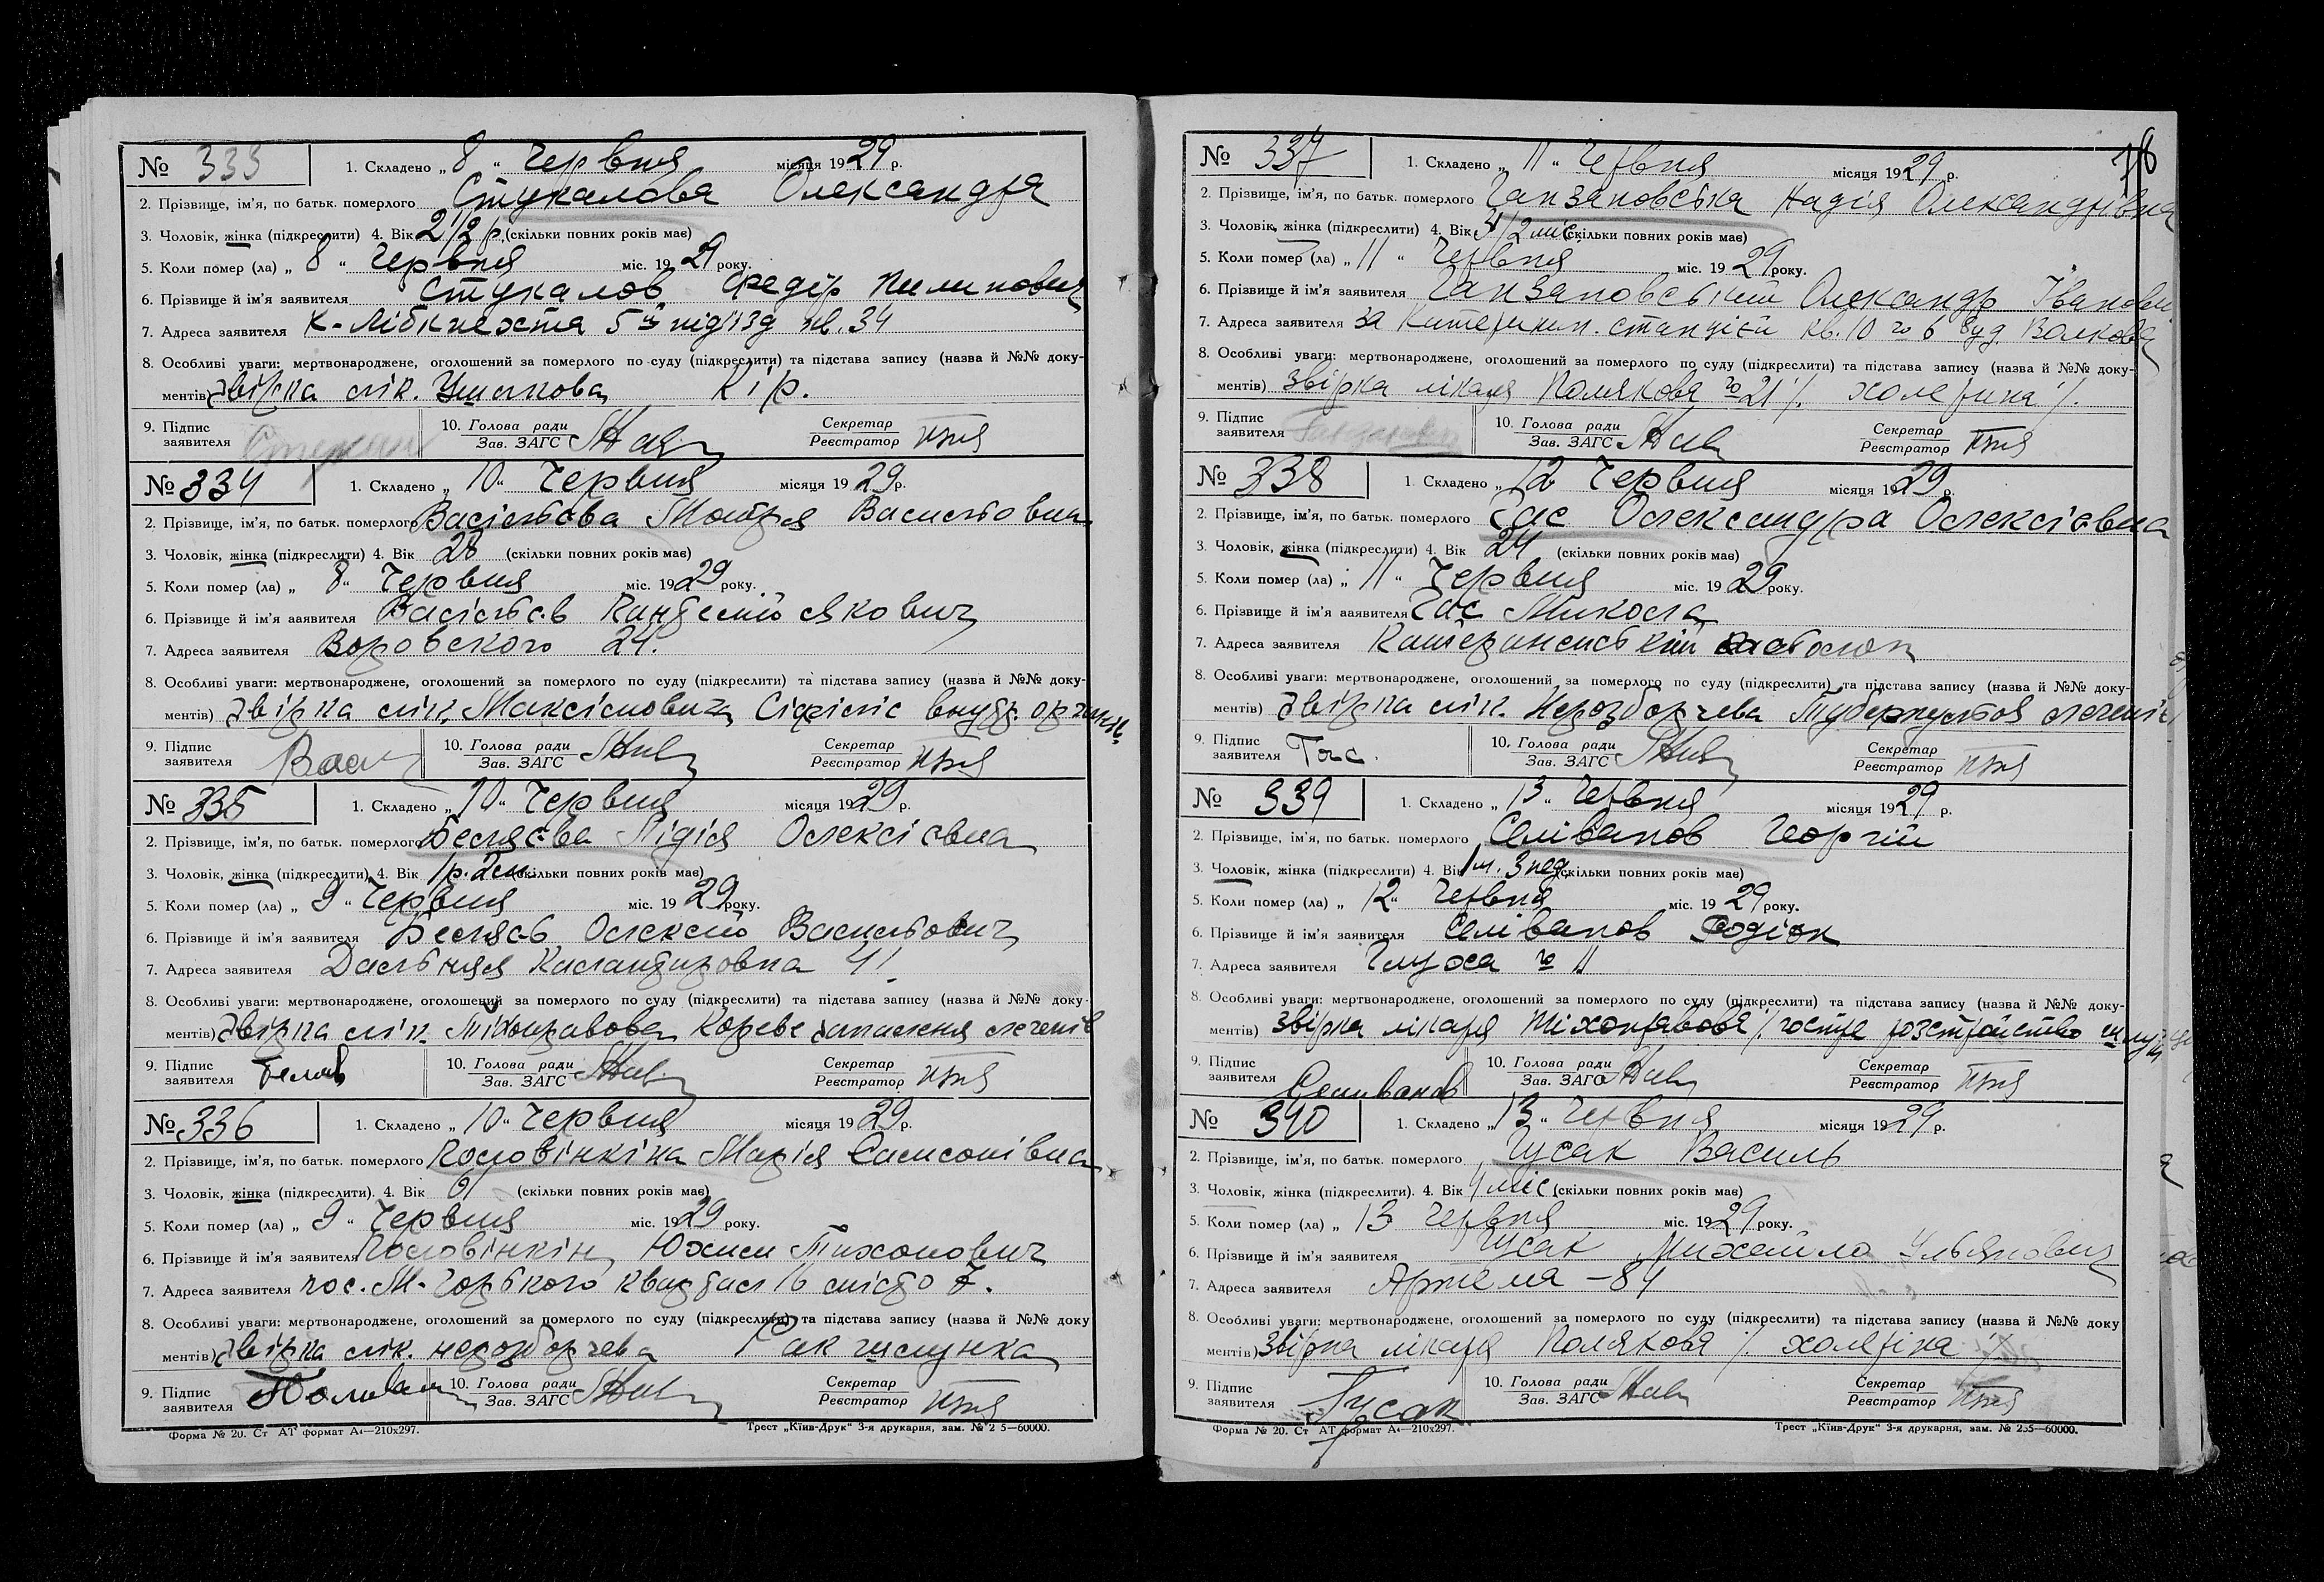 № 333 1. Складено „ 8 “ Червня місяця 1929 р.
2. Прізвище, ім'я, по батьк. померлого Стукалова Олександра
3. Чоловік, жінка (підкреслити) 4. Вік 2 1/2 р. (скільки повних років має)
5. Коли помер (ла) „ 8 “ Червня міс. 1929 року.
6. Прізвище й ім'я заявителя Стукалов Федір Пилипович
7. Адреса заявителя К-Лібкнехта 5ий під'їзд кв. 34
8. Особливі уваги: мертвонароджене, оголошений за померлого по суду (підкреслити) та підстава запису (назва й №№ доку-
ментів) звірка лік. Ушакова Кір.
9. Підпис заявителя 10. Голова ради Зав. ЗАГС Секретар Реєстратор
№ 334 1. Складено „ 10 “ Червня місяця 1929 р.
2. Прізвище, ім'я, по батьк. померлого Васільєва Мотря Васильовна
3. Чоловік, жінка (підкреслити) 4. Вік 28 (скільки повних років має)
5. Коли помер (ла) „ 8 “ Червня міс. 1929 року.
6. Прізвище й ім'я заявителя Васільєв Якович
7. Адреса заявителя Воровского 24.
8. Особливі уваги: мертвонароджене, оголошений за померлого по суду (підкреслити) та підстава запису (назва й №№ доку-
ментів) звірка лік. Максімовича Сіфіліс внутр. органів
9. Підпис заявителя 10. Голова ради Зав. ЗАГС Секретар Реєстратор
№ 335 1. Складено „ 10 “ Червня місяця 1929 р.
2. Прізвище, ім'я, по батьк. померлого Беляєва Лідія Олексієвна
3. Чоловік, жінка (підкреслити) 4. Вік 1 р. 2 м. (скільки повних років має)
5. Коли помер (ла) „ 9 “ Червня міс. 1929 року.
6. Прізвище й ім'я заявителя Беляєв Олексій Васильович
7. Адреса заявителя Дальняя
8. Особливі уваги: мертвонароджене, оголошений за померлого по суду (підкреслити) та підстава запису (назва й №№ доку-
ментів) звірка лік. Тіхонравова Кореве запалення легенів
9. Підпис заявителя 10. Голова ради Зав. ЗАГС Секретар Реєстратор
№ 336 1. Складено „ 10 “ Червня місяця 1929 р.
2. Прізвище, ім'я, по батьк. померлого Половінкіна Марія Самсонівна
3. Чоловік, жінка (підкреслити). 4. Вік 61 (скільки повних років має)
5. Коли помер (ла) „ 9 “ Червня міс. 1929 року.
6. Прізвище й ім'я заявителя Половінкін Юхим Тихонович
7. Адреса заявителя пос. М-Горького квартал 16 місто 7.
8. Особливі уваги: мертвонароджене, оголошений за померлого по суду (підкреслити) та підстава запису (назва й №№ доку
ментів) звірка лік. нерозборчева Рак шлунка
9. Підпис заявителя 10. Голова ради Зав. ЗАГС Секретар Реєстратор
Форма № 20. Ст АТ формат А4—210х297. Трест „Київ-Друк“ 3-я друкарня, зам. № 2 5—60000.
78
№ 337 1. Складено „ 11 “ Червня місяця 1929 р.
2. Прізвище, ім'я, по батьк. померлого Ганзановська Надія Олександрівна
3. Чоловік, жінка (підкреслити) 4. Вік 4 1/2 міс. (скільки повних років має)
5. Коли помер (ла) „ 11 “ Червня міс. 1929 року.
6. Прізвище й ім'я заявителя Ганзановський Олександр Іванович
7. Адреса заявителя за Катерынин. станцією кв. 10 № 6 буд. Волкова
8. Особливі уваги: мертвонароджене, оголошений за померлого по суду (підкреслити) та підстава запису (назва й №№ доку-
ментів) звірка лікаря Полякова № 21 /. холерина /.
9. Підпис заявителя 10. Голова ради Зав. ЗАГС Секретар Реєстратор
№ 338 1. Складено „ 12 Червня місяця 1929 р.
2. Прізвище, ім'я, по батьк. померлого Гас Олександра Олексієвна
3. Чоловік, жінка (підкреслити) 4. Вік 24 (скільки повних років має)
5. Коли помер (ла) „ 11 “ Червня міс. 1929 року.
6. Прізвище й ім'я заявителя Гас Микола
7. Адреса заявителя
8. Особливі уваги: мертвонароджене, оголошений за померлого по суду (підкреслити) та підстава запису (назва й №№ доку-
ментів) звірка лік. Нерозборчева Туберкульоз легенів
9. Підпис заявителя Гас. 10. Голова ради Зав. ЗАГС Секретар Реєстратор
№ 339 1. Складено „ 13 “ Червня місяця 1929 р.
2. Прізвище, ім'я, по батьк. померлого Селіванов Георгій
3. Чоловік, жінка (підкреслити) 4. Вік 1 м. 3 нед. (скільки повних років має)
5. Коли помер (ла) „ 12 “ Червня міс. 1929 року.
6. Прізвище й ім'я заявителя Селіванов Родіон
7. Адреса заявителя Глуха № 11
8. Особливі уваги: мертвонароджене, оголошений за померлого по суду (підкреслити) та підстава запису (назва й №№ доку-
ментів) звірка лікаря Тіхонравова /. гостре розстройство шлунка
9. Підпис заявителя Селиванов 10. Голова ради Зав. ЗАГС Секретар Реєстратор
№ 340 1. Складено „ 13 “ Червня місяця 1929 р.
2. Прізвище, ім'я, по батьк. померлого Гусак Василь
3. Чоловік, жінка (підкреслити). 4. Вік 4 міс (скільки повних років має)
5. Коли помер (ла) „ 13 Червня міс. 1929 року.
6. Прізвище й ім'я заявителя Гусак Михайло Ульянович
7. Адреса заявителя Артема - 84
8. Особливі уваги: мертвонароджене, оголошений за померлого по суду (підкреслити) та підстава запису (назва й №№ доку
ментів) звірка лікаря Полякова /. холєріна /.
9. Підпис заявителя Гусак 10. Голова ради Зав. ЗАГС Секретар Реєстратор
Форма № 20. Ст АТ формат А4—210х297. Трест „Київ-Друк“ 3-я друкарня, зам. № 235—60000.